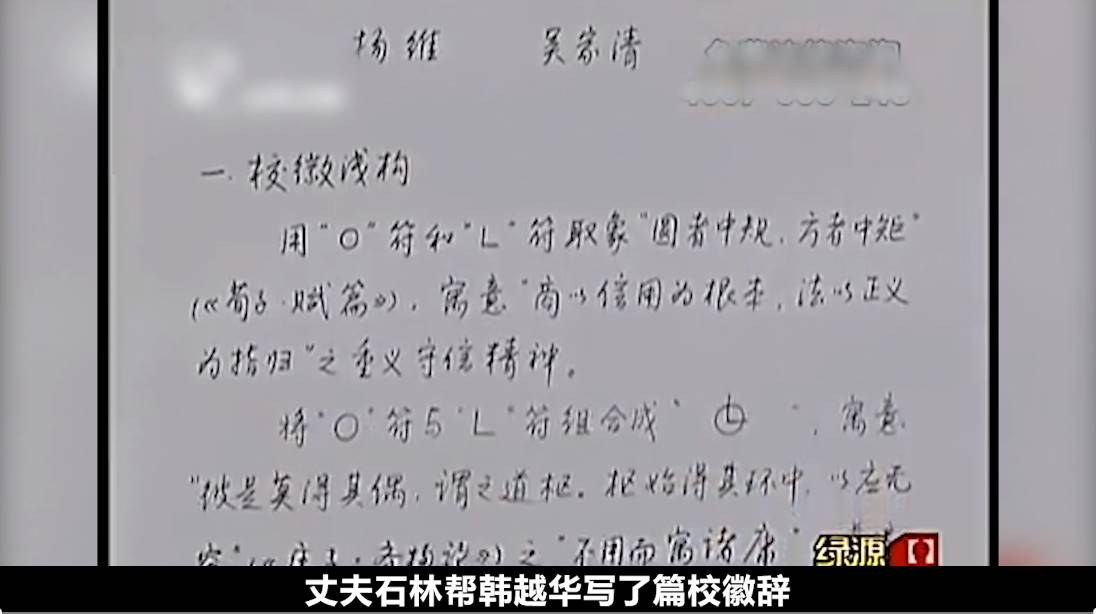 杨维 吴家清
一.校徽浅构
用“O”符和“L”符取象“圆者中规,方者中矩”
(《荀子·赋篇》),寓意“商以信用为根本,法以正义
为指归”之重义守信精神。
将“O”符与“L”符组合成“ ”,寓意
“彼是莫得其偶,谓之道枢。枢始得其环中,以应无
穷”(《庄子·齐物论》)之“不用而寓诸庸”
绿源
丈夫石林帮韩越华写了篇校徽辞